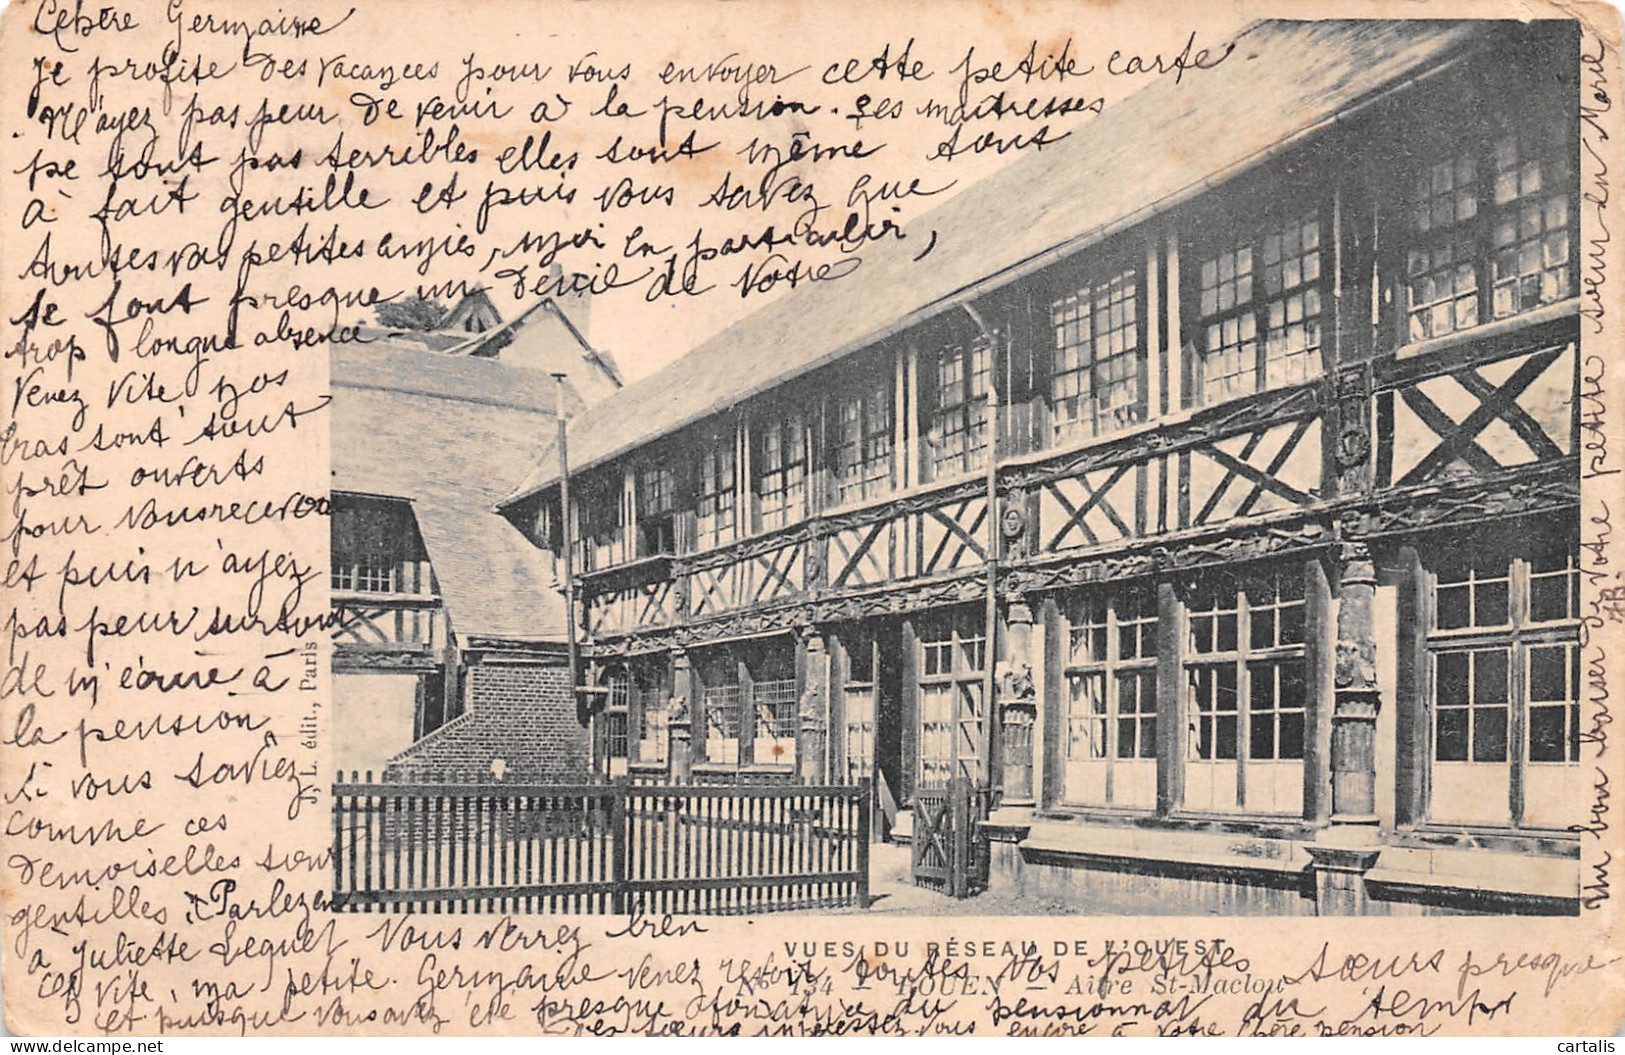 Chère Germaine
Je profite des vacances pour vous envoyer cette petite carte.
N'ayez pas peur de venir à la pension. Les maîtresses
ne sont pas terribles elles sont même tout
à fait gentille et puis vous savez que
toutes vos petites amies, moi en particulier,
se font presque un deuil de votre
trop longue absence -
Venez vite nos
bras sont tout
prêt ouverts
pour vous recevoir
et puis n'ayez
pas peur surtout
de m'écrire à
la pension
si vous saviez
comme ces
demoiselles sont
gentilles ! Parlez en
à Juliette Lequet Vous verrez bien
vite, ma petite Germaine venez revoir toutes vos petites sœurs presque
et puisque vous avez été presque du pensionnat du temps
des sœurs intéressez-vous encore à votre chère pension
Un bon baiser de votre petite sœur en Marie
J. L. édit., Paris
VUES DU RÉSEAU DE L'OUEST
N° 134 - ROUEN - Aître St-Maclou
cartalis